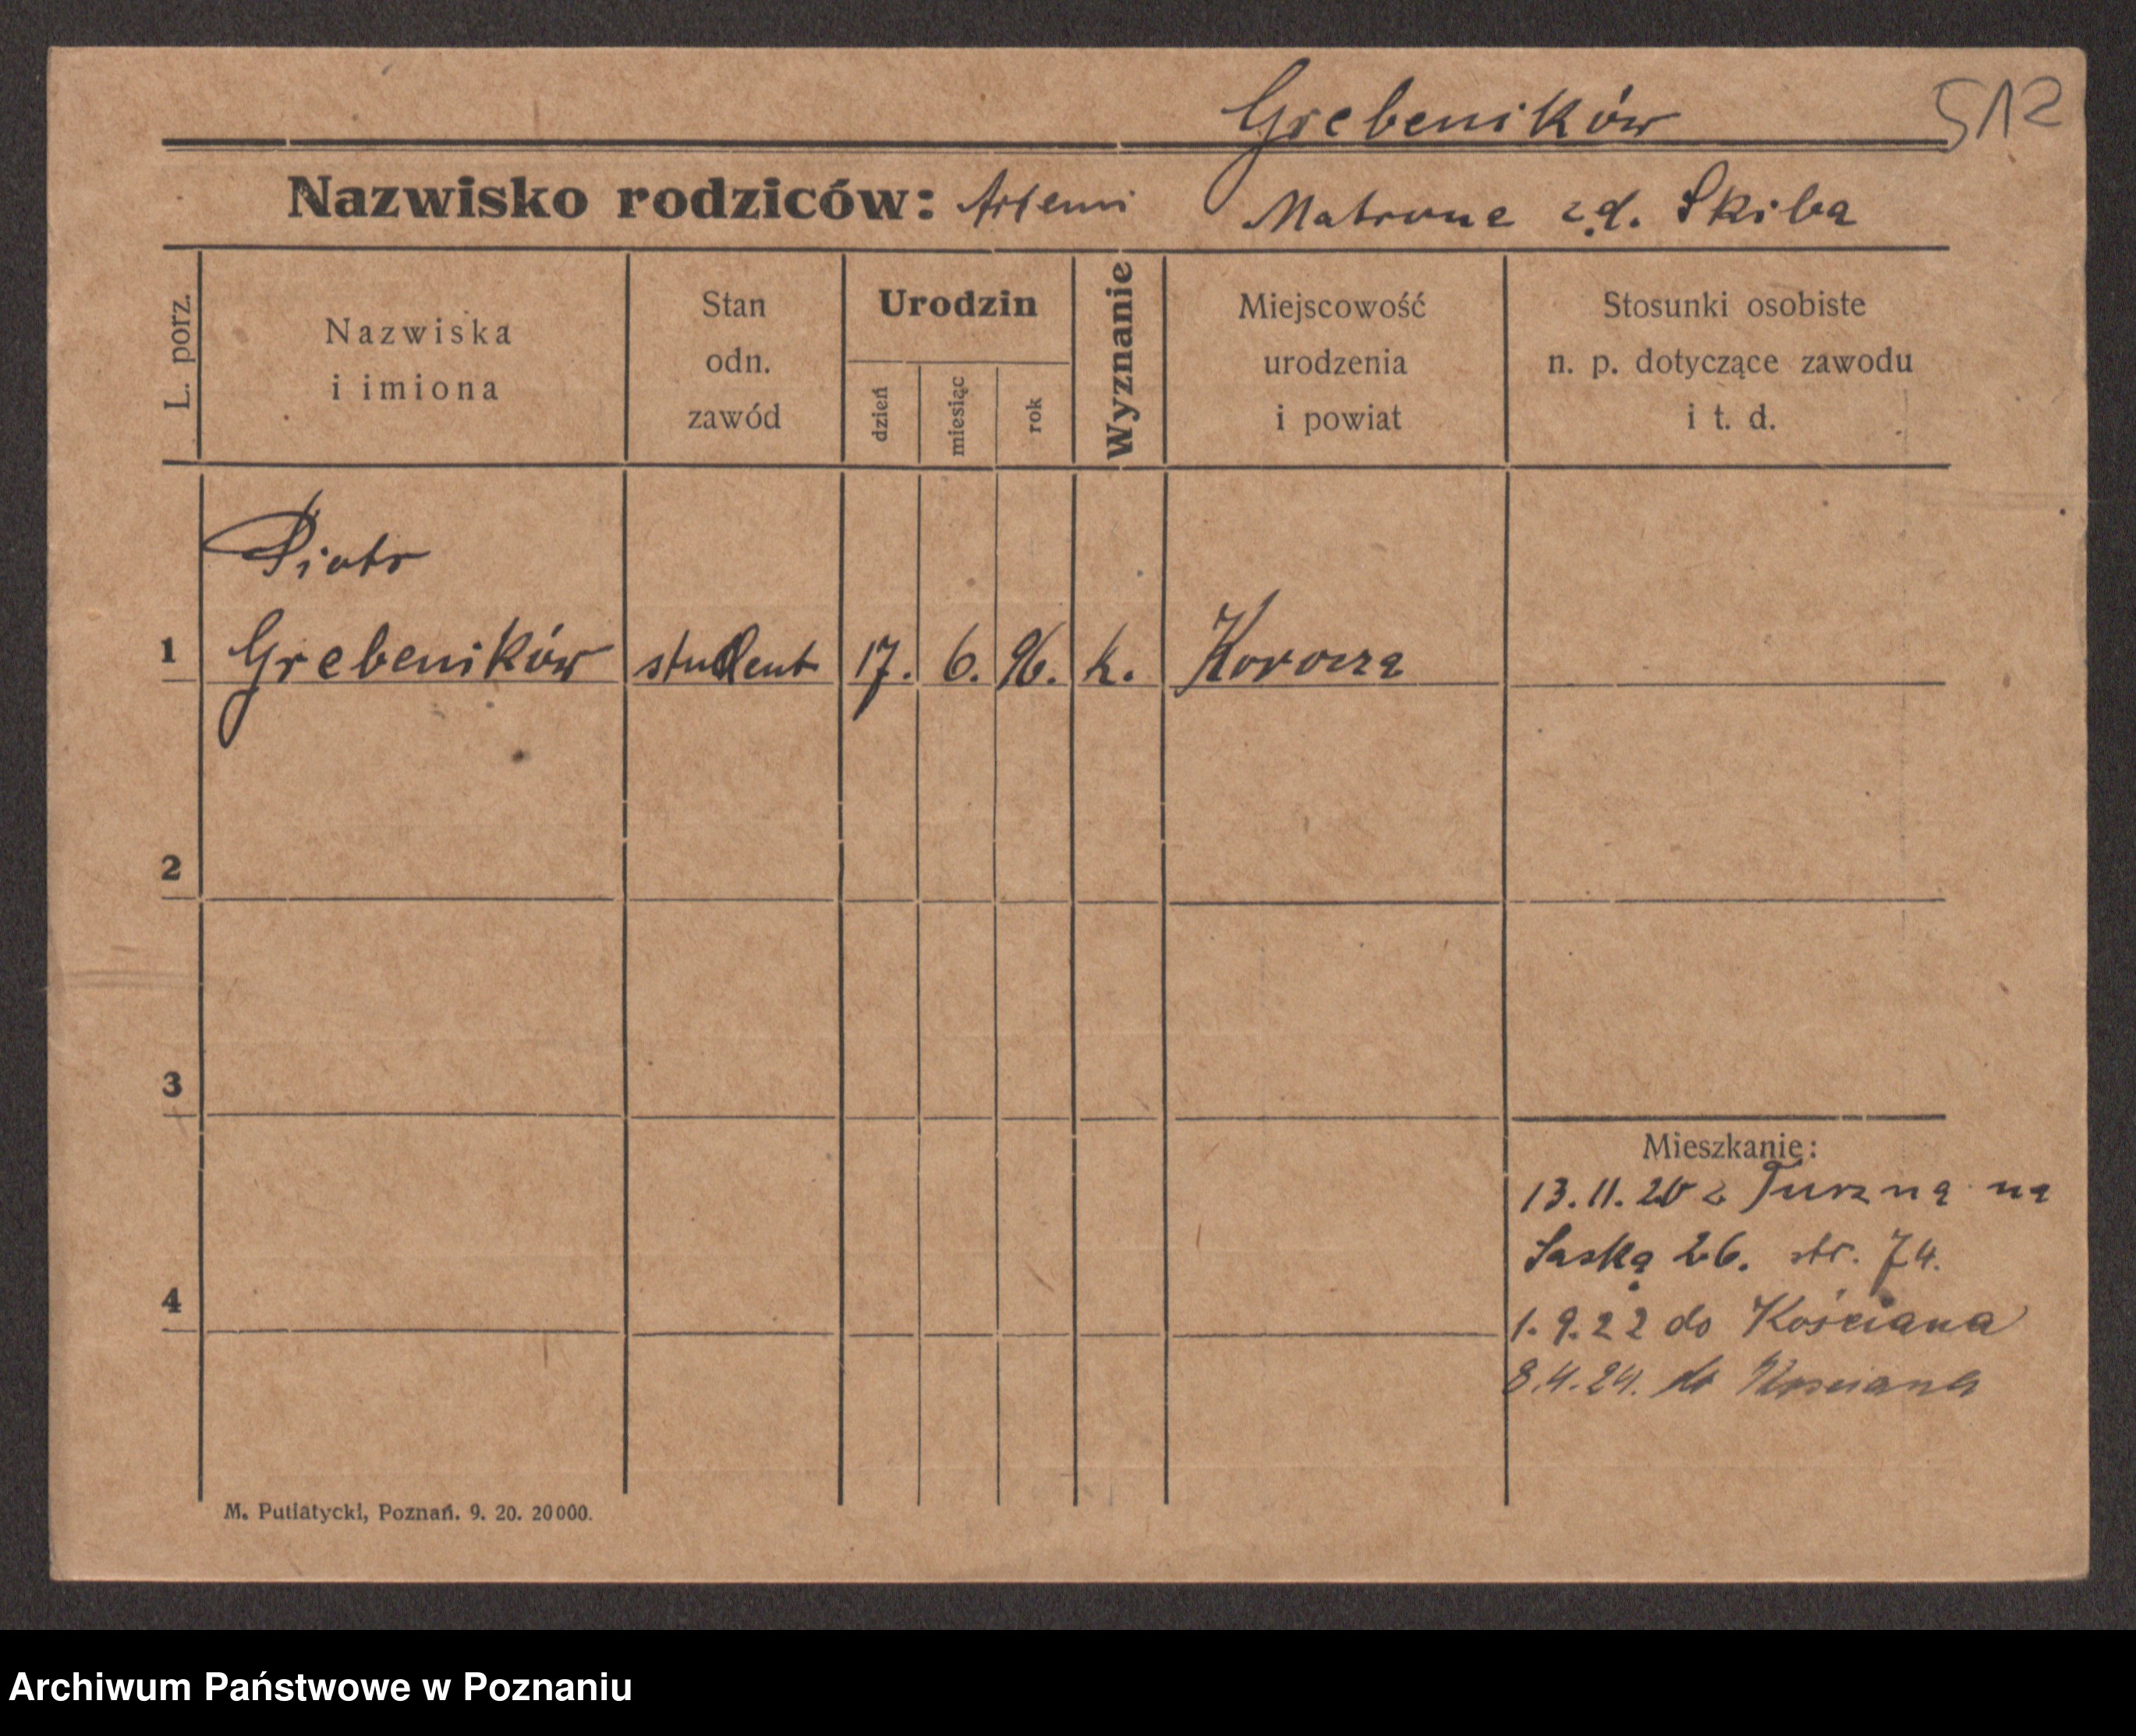 Grebeników 512
Nazwisko rodziców: Artemi Matrone z d. Skiba
L. porz.
Nazwiska
i imiona
Stan
odn.
zawód
Urodzin
dzień
miesiąc
rok
Wyznanie
Miejscowość
urodzenia
i powiat
Stosunki osobiste
n. p. dotyczące zawodu
i t. d.
Piotr
1 Grebeników student 17. 6. 96. k.
2
3
Mieszkanie:
13.11.20 z Turzną na
Saską 26. str. 74.
4
1.9.22 do Kościana
8.4.24. do Kościana
M. Putiatycki, Poznań. 9. 20. 20000.
Archiwum Państwowe w Poznaniu